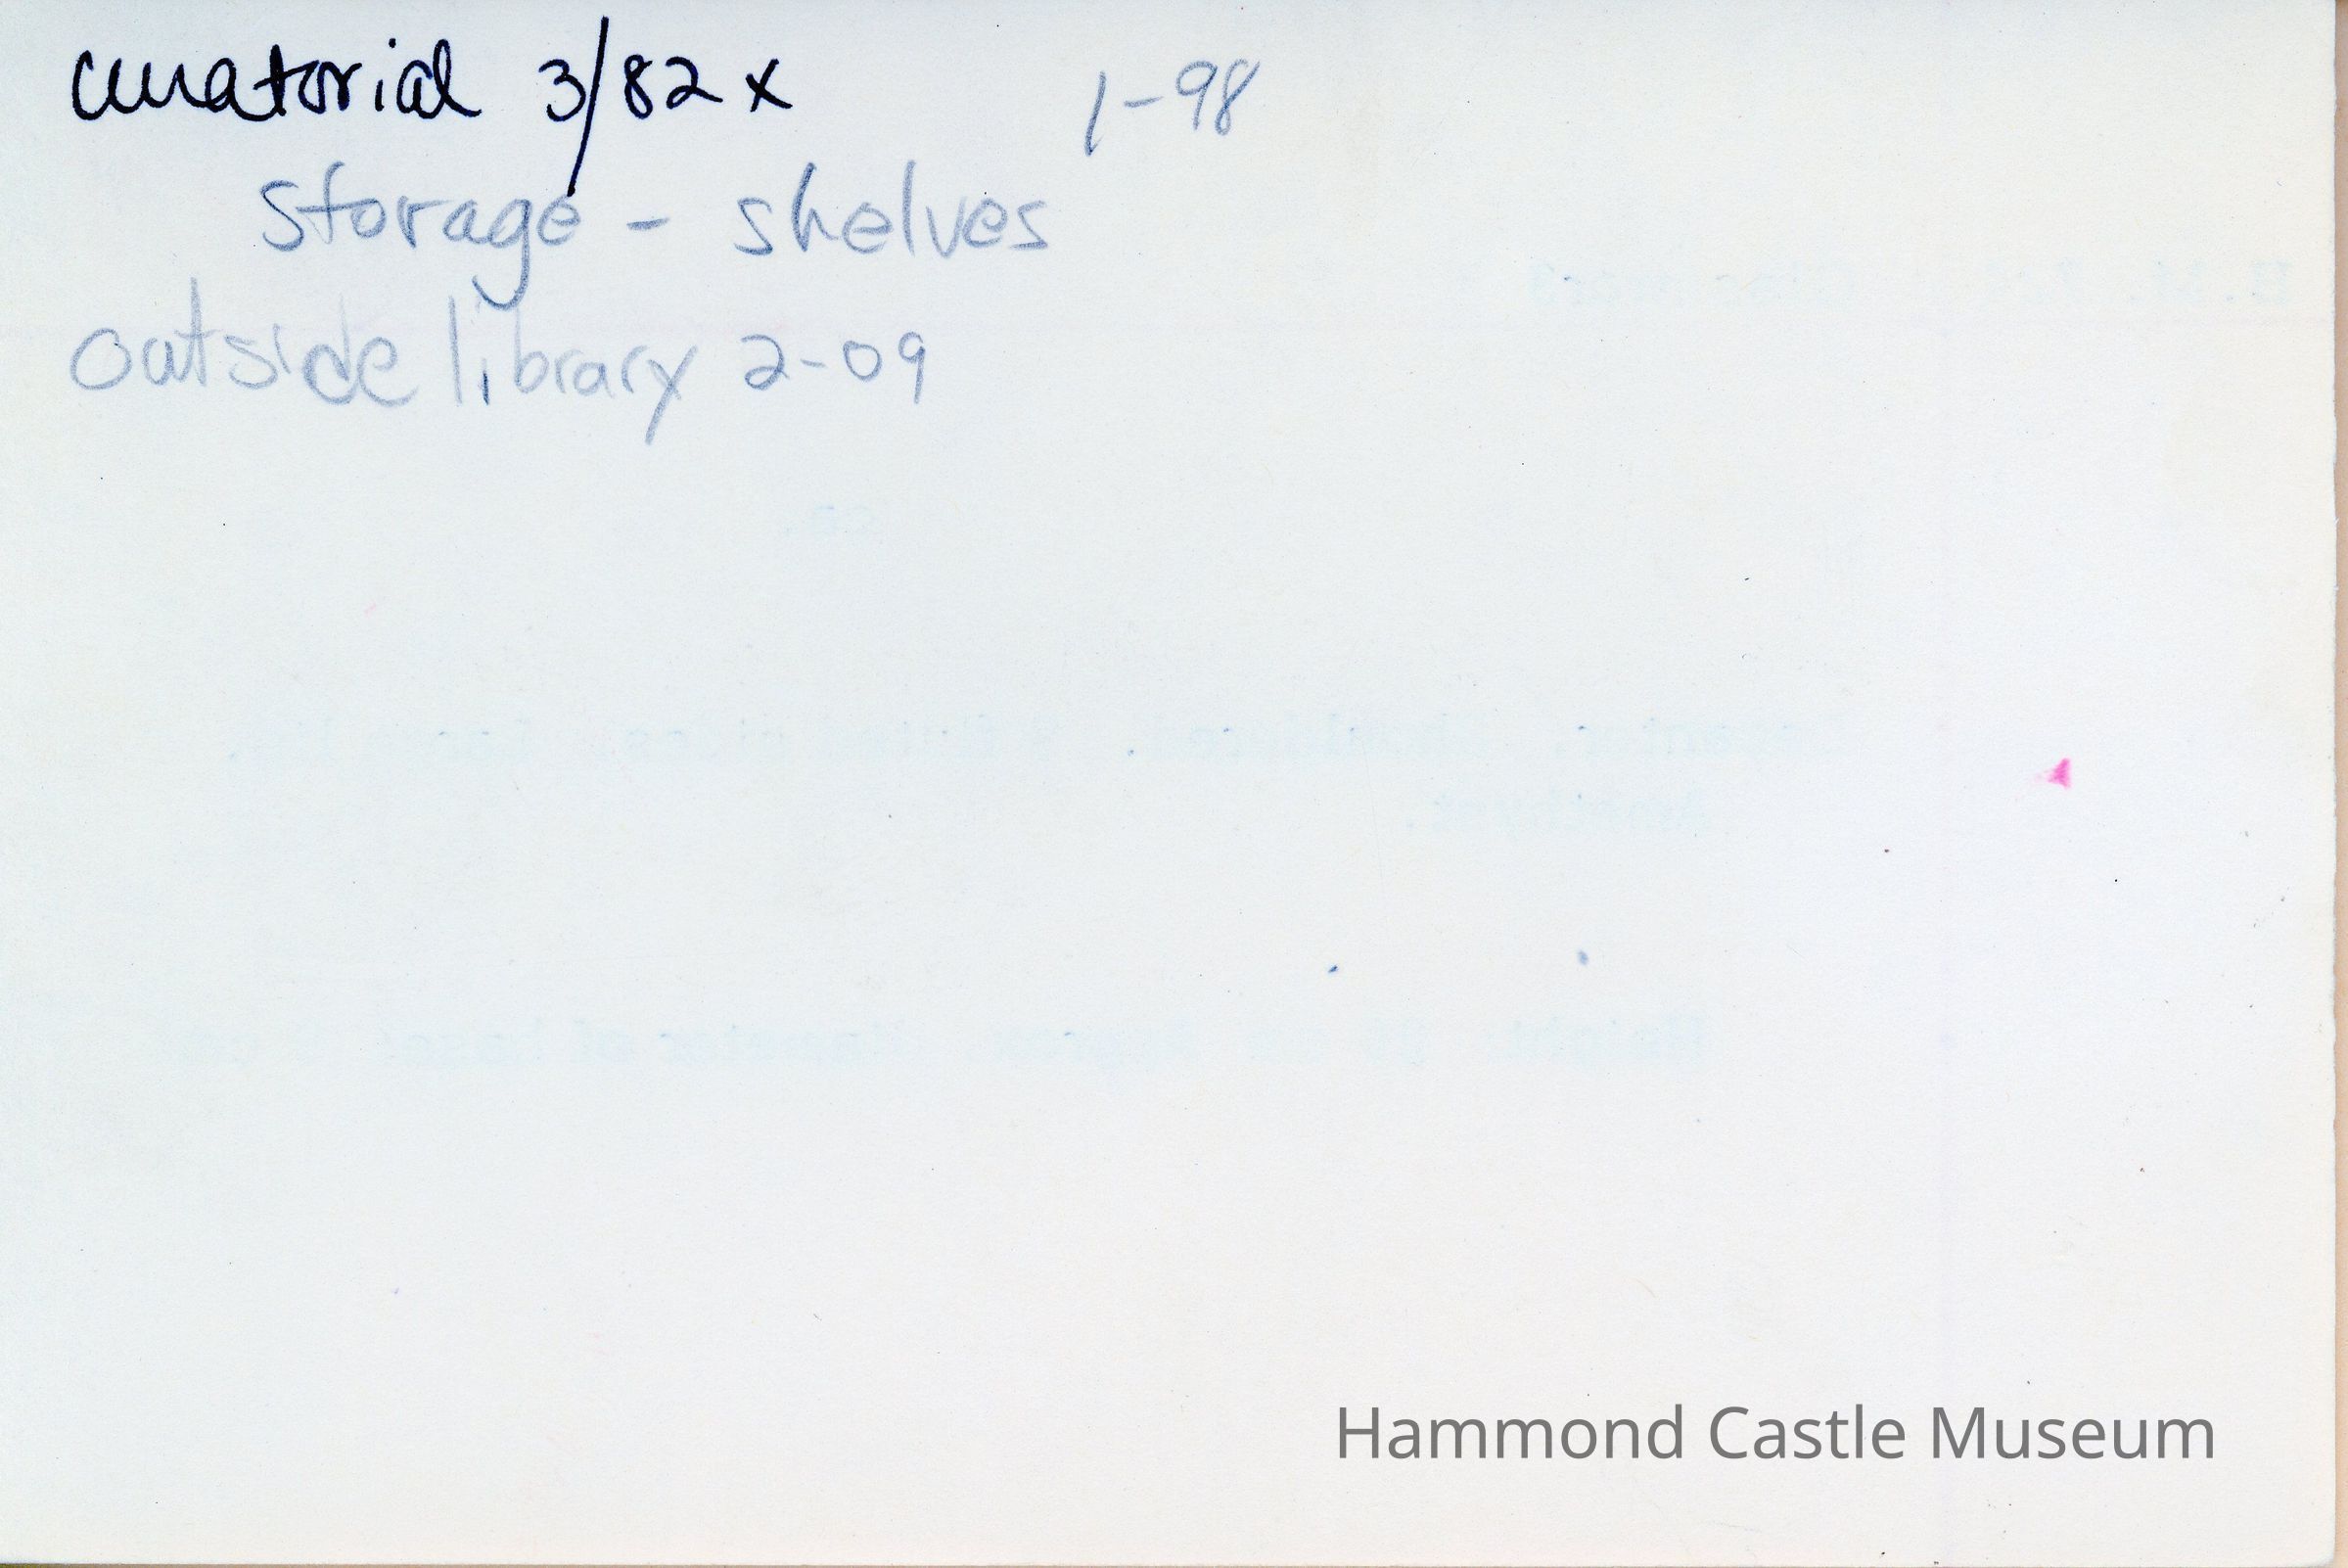 curatorial 3/82 x 1-98
storage - shelves
outside library 2-09
Hammond Castle Museum